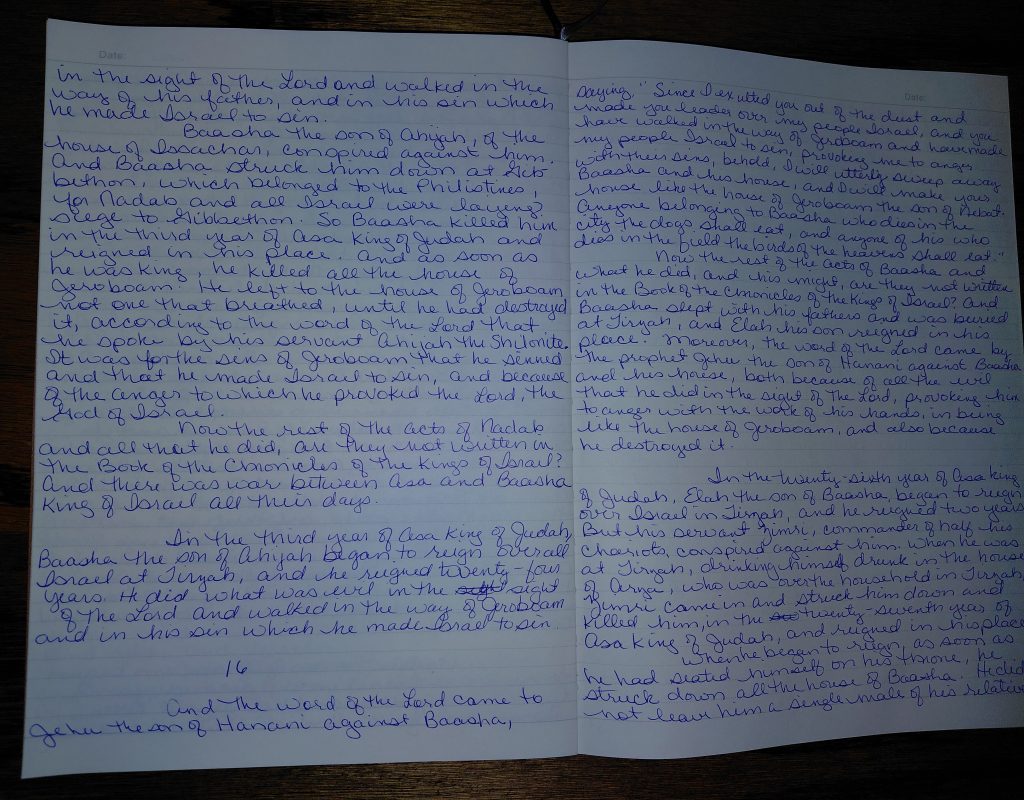 Date:
in the sight of the Lord and walked in the
way of his father, and in his sin which
he made Israel to sin.
Baasha the son of Ahijah, of the
house of Issachar, conspired against him.
And Baasha struck him down at Gib
bethon, which belonged to the Philistines,
for Nadab and all Israel were laying
siege to Gibbethon. So Baasha killed him
in the third year of Asa King of Judah and
reigned in his place. And as soon as
he was King, he killed all the house of
Jeroboam. He left to the house of Jeroboam
not one that breathed, until he had destroyed
it, according to the word of the Lord that
he spoke by his servant Ahijah the Shilonite.
It was for the sins of Jeroboam that he sinned
and that he made Israel to sin, and because
of the anger to which he provoked the Lord, the
God of Israel.
Now the rest of the acts of Nadab
and all that he did, are they not written in
the Book of the Chronicles of the Kings of Israel?
And there was war between Asa and Baasha
King of Israel all their days.
In the third year of Asa King of Judah,
Baasha the son of Ahijah began to reign over all
Israel at Tirzah, and he reigned twenty-four
years. He did what was evil in the sight
of the Lord and walked in the way of Jeroboam
and in his sin which he made Israel to sin.
16
And the word of the Lord came to
Jehu the son of Hanani against Baasha,
Date:
saying, "Since I exalted you out of the dust and
made you leader over my people Israel, and you
have walked in the way of Jeroboam and have made
my people Israel to sin, provoking me to anger
with their sins, behold, I will utterly sweep away
Baasha and his house, and I will make your
house like the house of Jeroboam the son of Nebat.
Anyone belonging to Baasha who dies in the
city the dogs shall eat, and anyone of his who
dies in the field the birds of the heavens shall eat."
Now the rest of the acts of Baasha and
what he did, and his might, are they not written
in the Book of the Chronicles of the Kings of Israel? And
Baasha slept with his fathers and was buried
at Tirzah, and Elah his son reigned in his
place. Moreover, the word of the Lord came by
the prophet Jehu the son of Hanani against Baasha
and his house, both because of all the evil
that he did in the sight of the Lord, provoking him
to anger with the work of his hands, in being
like the house of Jeroboam, and also because
he destroyed it.
In the twenty-sixth year of Asa king
of Judah, Elah the son of Baasha, began to reign
over Israel in Tirzah, and he reigned two years
But his servant Zimri, commander of half his
chariots, conspired against him. When he was
at Tirzah, drinking himself drunk in the house
of Arza, who was over the household in Tirzah,
Zimri came in and struck him down and
killed him, in the twenty-seventh year of
Asa King of Judah, and reigned in his place
When he began to reign, as soon as
he had seated himself on his throne, he
struck down all the house of Baasha. He did
not leave him a single male of his relative